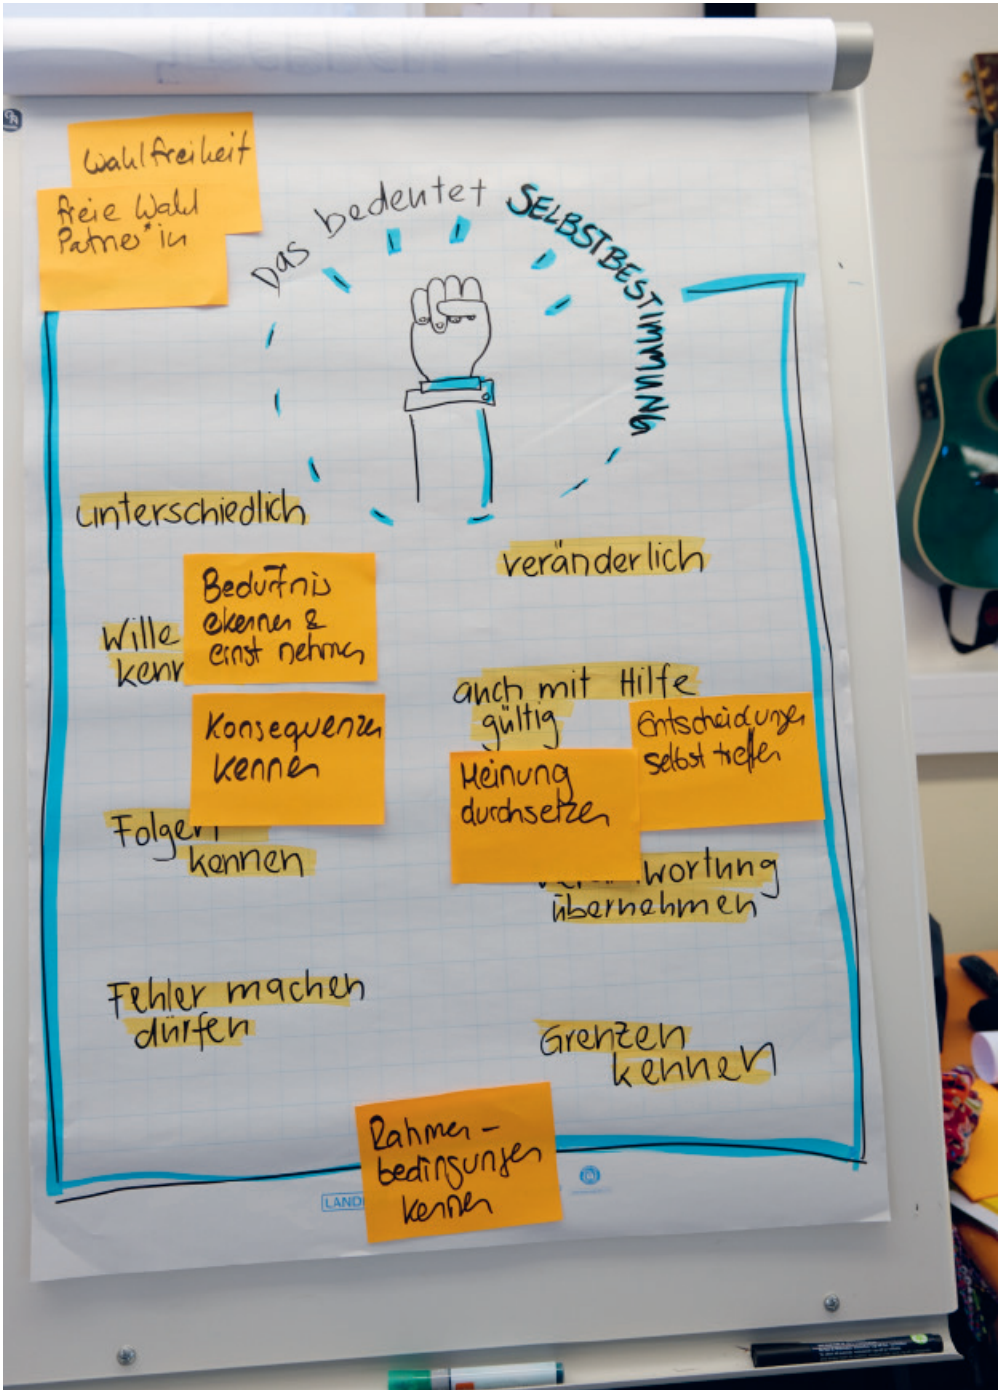 Wahlfreiheit
freie Wahl
Patner*in
Das bedeutet SELBSTBESTIMMUNG
unterschiedlich
veränderlich
Bedürfnis
ekennen &
ernst nehmen
Wille
kenn
auch mit Hilfe
gültig
Konsequenzen
kennen
Entscheidungen
selbst treffen
Meinung
durchsetzen
Folgen
kennen
wortung
übernehmen
Fehler machen
dürfen
Grenzen
kennen
Rahmen-
bedingungen
kennen
LAND